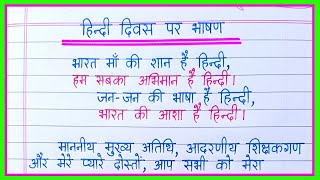 हिन्दी दिवस पर भाषण
भारत माँ की शान है हिन्दी,
हम सबका अभिमान है हिन्दी।
जन-जन की भाषा है हिन्दी,
भारत की आशा है हिन्दी।
माननीय मुख्य अतिथि, आदरणीय शिक्षकगण
और मेरे प्यारे दोस्तों, आप सभी को मेरा